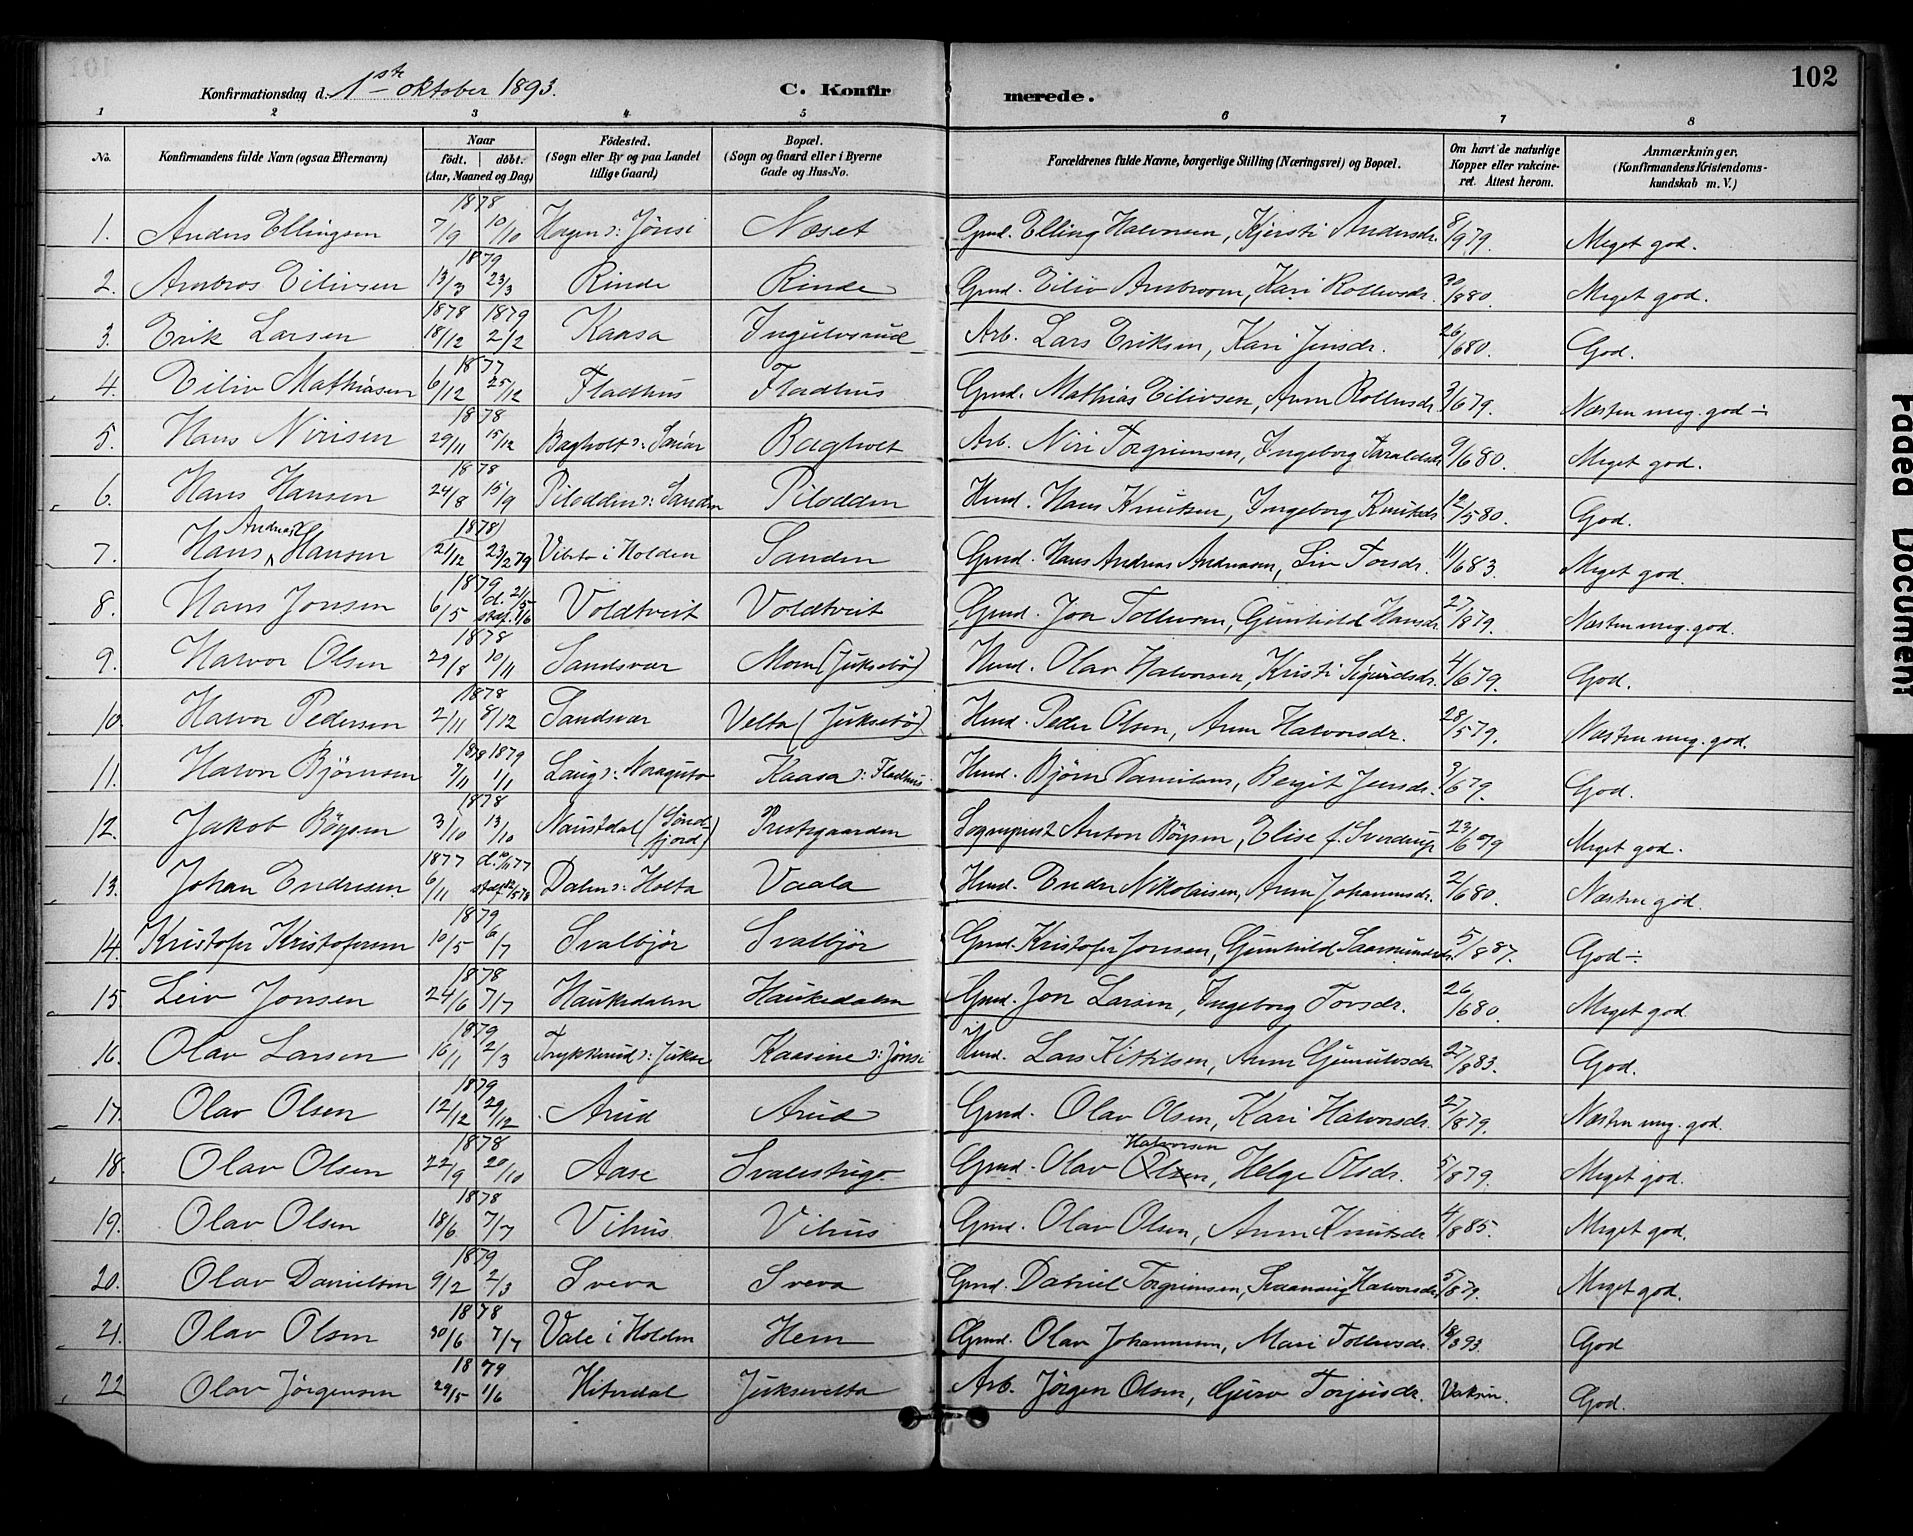 102
Konfirmationsdag d. 1ste oktober 1893. C. Konfir merede.
1 2 3 4 5 6 7 8
No. Konfirmandens fulde Navn (ogsaa Efternavn) Naar født. døbt. (Aar, Maaned og Dag) Födested. (Sogn eller By og paa Landet tillige Gaard) Bopæl. (Sogn og Gaard eller i Byerne Gade og Hus-No. Forældrenes fulde Navne, borgerlige Stilling (Næringsvei) og Bopæl. Om havt de naturlige Kopper eller vakcineret. Attest herom. Anmærkninger. (Konfirmandens Kristendomskundskab m. V.)
1. Anders Ellingsen 1878 7/9 10/10 Hagen ɔ: Jönsi Næset Grmd. Elling Halvorsen, Kjersti Andersdr. 8/9 79. Meget god.
2. Ambros Eilivsen 1879 13/3 23/3 Rinde Rinde Grmd. Eiliv Ambrosen, Kari Rollevsdr. 30/8 80. Meget god.
3. Erik Larsen 1878 18/12 1879 2/2 Kaasa Ingulvsrud Arb. Lars Eriksen, Kari Jensdr. 26/6 80. God.
4. Eiliv Mathiasen 1877 6/12 25/12 Fladhus Fladhus Grmd. Mathias Eilivsen, Anne Rollevsdr. 3/6 79. Næsten meg. god ÷
5. Hans Nirisen 1878 29/11 15/12 Bagholt ɔ: Bagholt Arb. Niri Torgrimsen, Ingeborg Taraldsdr. 9/6 80. Meget god.
6. Hans Hansen 1878 24/8 15/9 Pilodden ɔ: Sanden Pilodden Hmd. Hans Knutsen, Ingeborg Knutsdr. 12/5 80. God.
7. Hans Andreas Hansen 1878 21/12 23/2 79 i Holden Sanden Grmd. Hans Andreas Andreasen, Liv Torsdr. 11/6 83. Meget god.
8. Hans Jonsen 1879 6/5 d. 21/5 stadf. 1/6 Voldtveit Voldtveit Grmd. Jon Tollevsen, Gunhild Hansdr. 27/8 79. Næsten meg. god.
9. Halvor Olsen 1878 29/8 10/11 Sandsvær Moen (Juksebö) Hmd. Olav Halvorsen, Kristi Sigurdsdr. 4/6 79. God.
10. Halvor Pedersen 1878 2/11 8/12 Sandsvær Velta (Juksebö) Hmd. Peder Olsen, Anne Halvorsdr. 28/5 79. Næsten meg. god.
11. Halvor Björnsen 1878 7/11 1879 1/1 Kaasa ɔ: Fladhus Hmd. Björn Danielsen, Bergit Jensdr. 3/6 79. God.
12. Jakob Börgsen 1878 3/10 13/10 Naustdal (Söndfjord) Prestegaarden Sogneprest Anton Elise f. Sverdrup 23/6 79 Meget god.
13. Johan Endresen 1877 6/11 d. 10/11 77 Dalen ɔ: Holta Vaala Hmd. Endre Nikolaisen, Anne Johannesdr. 2/6 80. Næsten god.
14. Kristofer Kristofersen 1879 10/5 6/7 Svalbjör Svalbjör Grmd. Kristofer Jonsen, Gunhild Saamundsdr. 5/1 87. God ÷.
15. Leiv Jonsen 1878 24/6 7/7 Haukedalen Haukedalen Grmd. Jon Larsen, Ingeborg Torsdr. 26/6 80. Meget god
16. Olav Larsen 1879 16/1 2/3 Trykkerud ɔ: Jukse Kaasine ɔ: Jönsi Hmd. Lars Kittilsen, Anne Gunulvsdr. 27/8 83. God.
17. Olav Olsen 1879 12/12 29/12 Arud Arud Grmd. Olav Olsen, Kari Halvorsdr. 27/8 79. Næsten meg. god.
18. Olav Olsen 1878 22/9 20/10 Aase Svalestuga Grmd. Olav Halvorsen Olsen, Helge Olsdr. 5/8 79. Meget god.
19. Olav Olsen 1878 18/6 7/7 Vihus Vihus Grmd. Olav Olsen, Anne Knutsdr. 4/8 85. Meget god.
20. Olav Danielsen 1879 9/2 2/3 Sveva Sveva Grmd. Daniel Torgrimsen, Halvorsdr. 5/8 79. Meget god.
21. Olav Olsen 1878 30/6 7/7 Vale i Holden Hem Grmd. Olav Johannesen, Mari Tollevsdr. 18/3 93. God
22 Olav Jörgensen 1879 29/5 1/6 Hiterdal Juksevelta Arb. Jörgen Olsen, Guro Torjusdr. Vaksin. God.
Faded Document